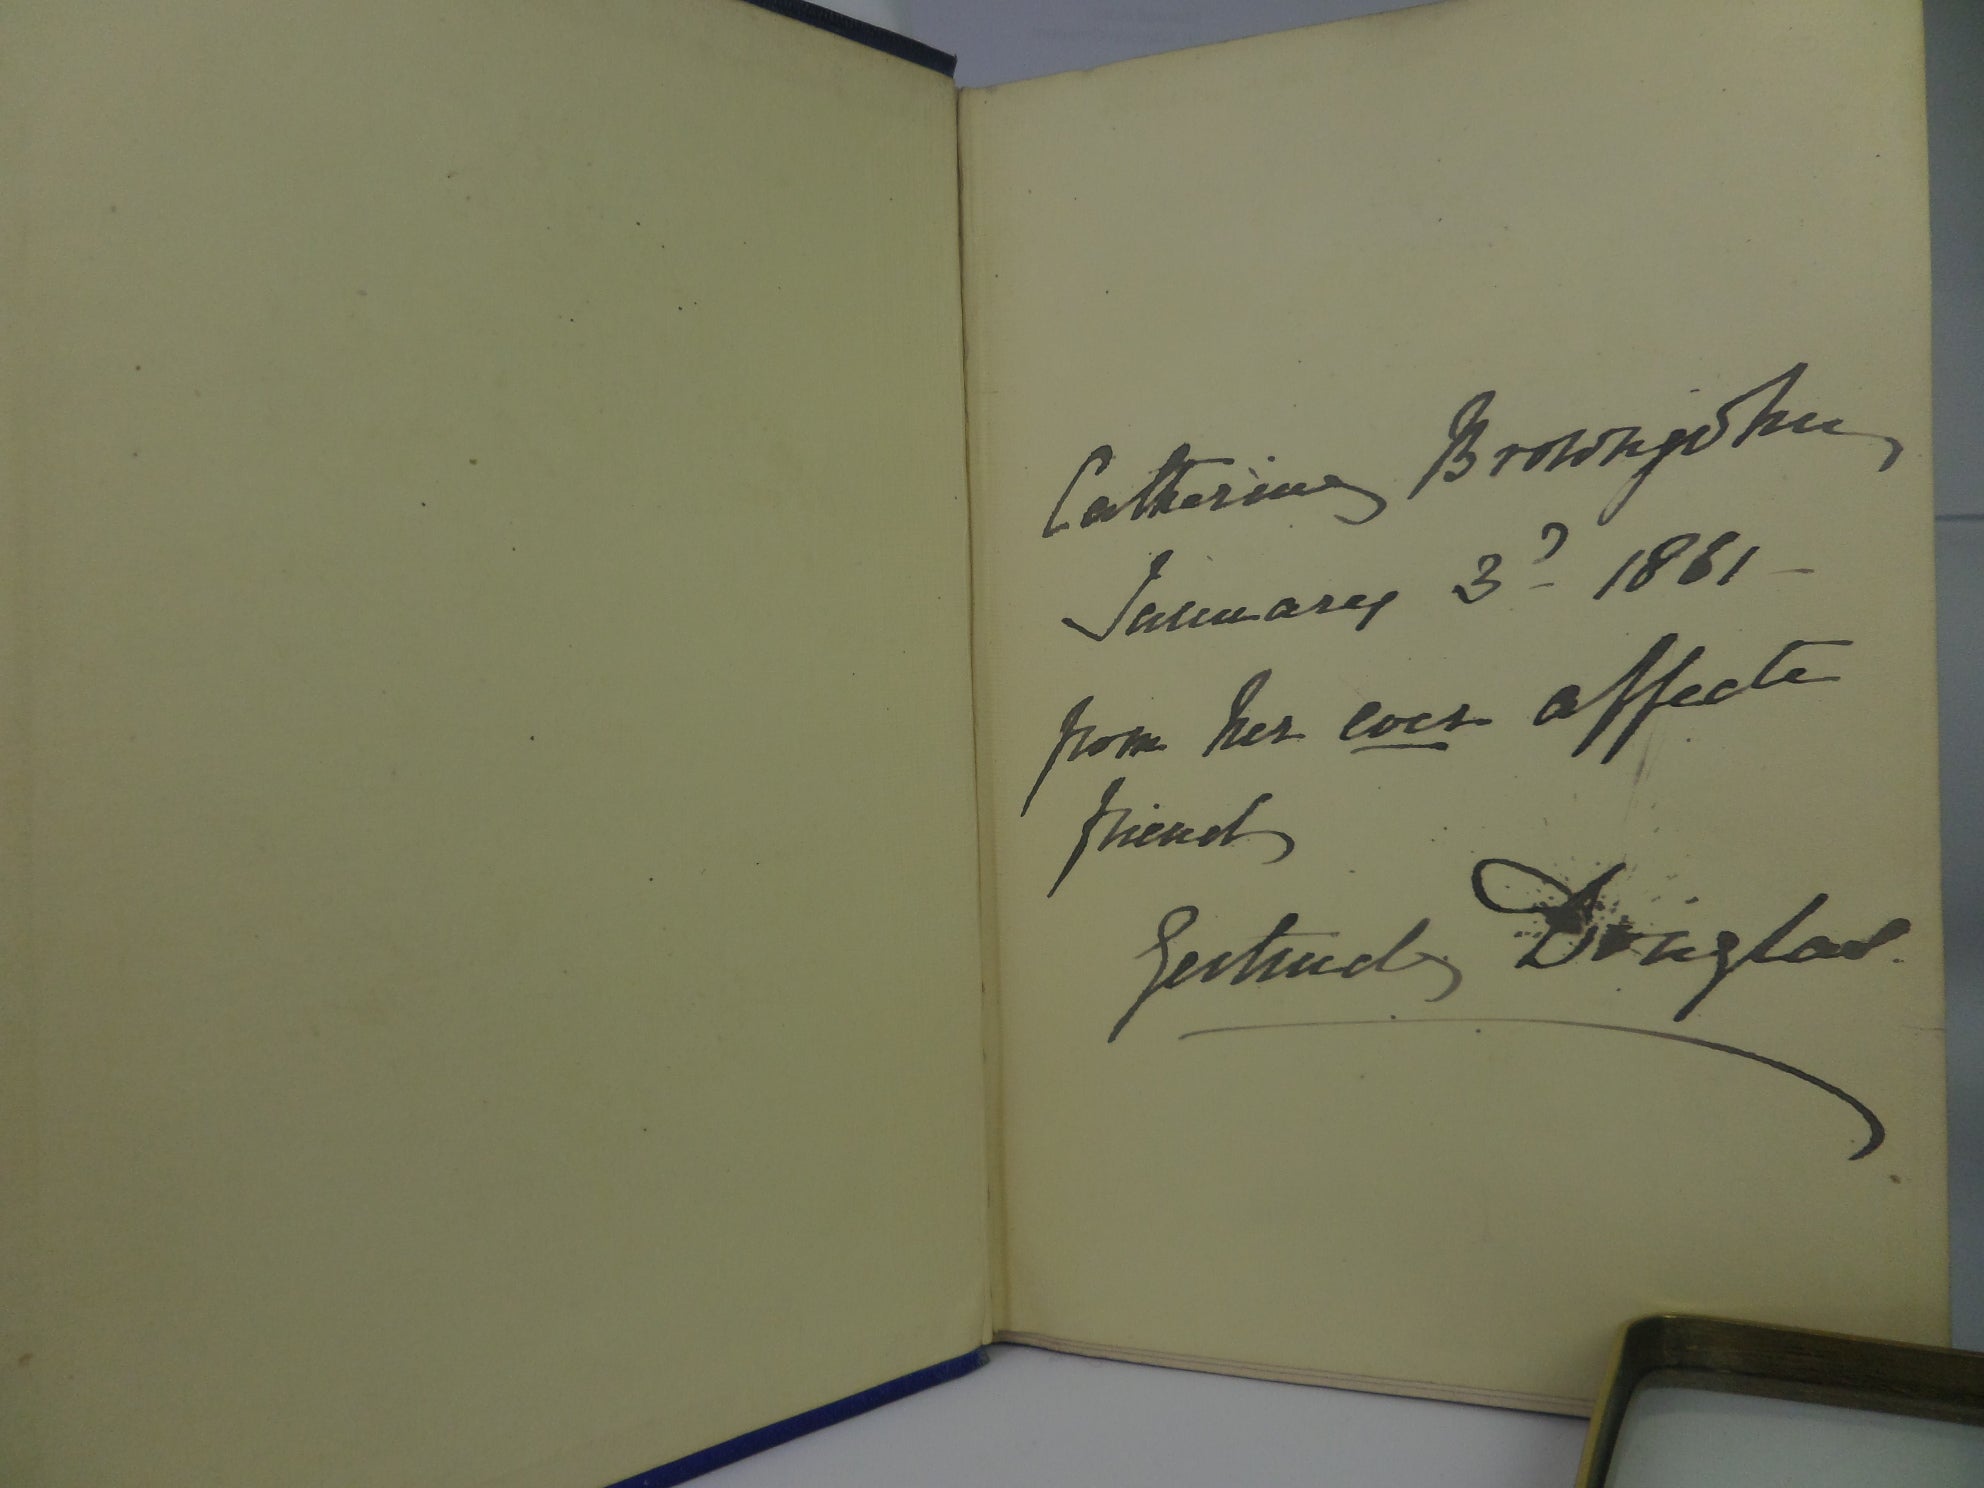 Catherine Brownjohn
January 3d 1881 -
from her ever affecte
friend
Gertrude Douglas.